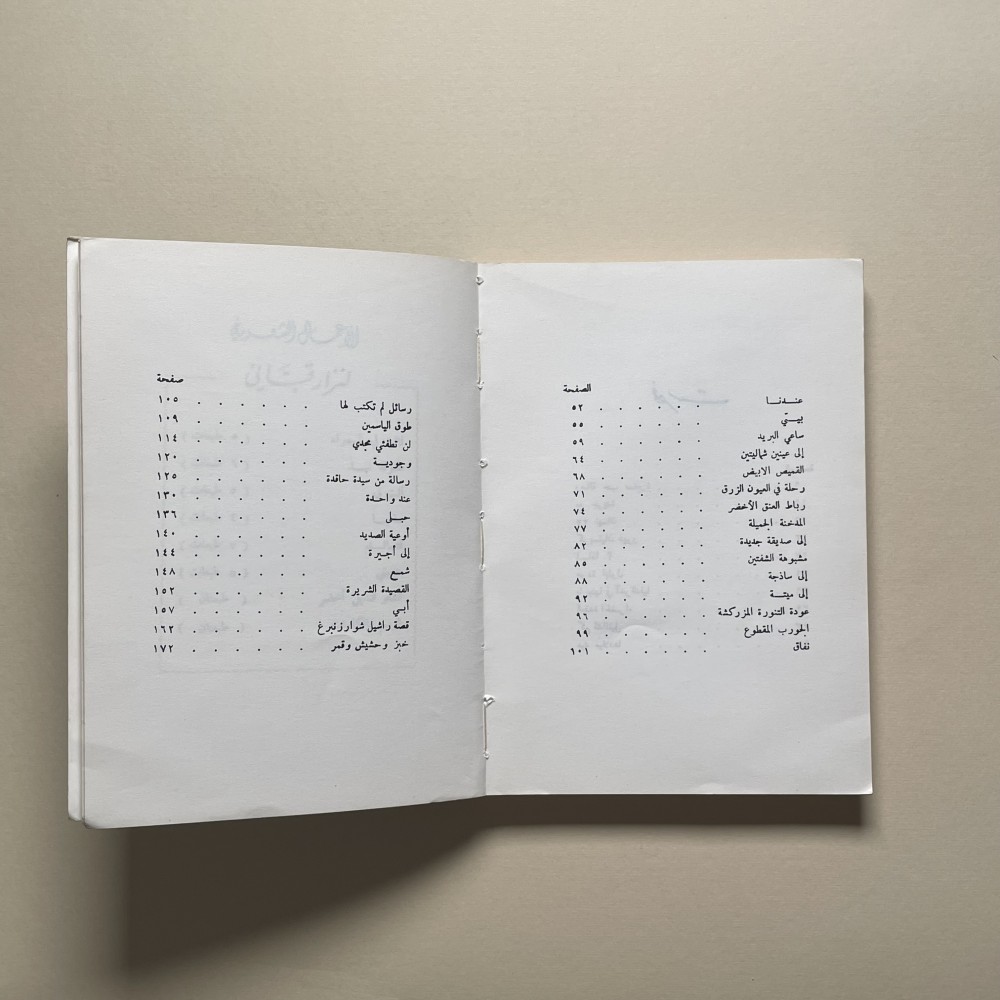 الصفحة
عندنا . . . . . . ٥٢
بيتي . . . . . . ٥٥
ساعي البريد . . . . . . ٥٩
إلى عينين شماليتين . . . . . . ٦٤
القميص الابيض . . . . . . ٦٨
رحلة في العيون الزرق . . . . . . ٧١
رباط العنق الأخضر . . . . . . ٧٤
المدخنة الجميلة . . . . . . ٧٧
إلى صديقة جديدة . . . . . . ٨٢
مشبوهة الشفتين . . . . . . ٨٥
إلى ساذجة . . . . . . ٨٨
إلى ميتة . . . . . . ٩٢
عودة التنورة المزركشة . . . . . . ٩٦
الجورب المقطوع . . . . . . ٩٩
نفاق . . . . . . ١٠١
صفحة
رسائل لم تكتب لها . . . . . . ١٠٥
طوق الياسمين . . . . . . ١٠٩
لن تطفئي مجدي . . . . . . ١١٤
وجودية . . . . . . ١٢٠
رسالة من سيدة حاقدة . . . . . . ١٢٥
عند واحدة . . . . . . ١٣٠
حبلى . . . . . . ١٣٦
أوعية الصديد . . . . . . ١٤٠
إلى أجيرة . . . . . . ١٤٤
شمع . . . . . . ١٤٨
القصيدة الشريرة . . . . . . ١٥٢
أبي . . . . . . ١٥٧
قصة راشيل شوارزنبرغ . . . . . . ١٦٢
خبز وحشيش وقمر . . . . . . ١٧٢